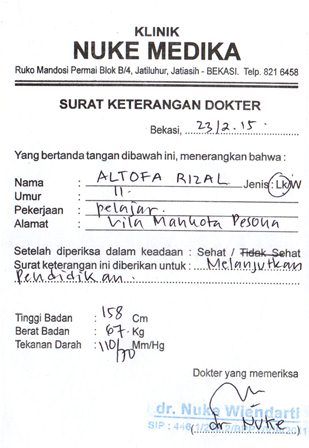 KLINIK
NUKE MEDIKA
Ruko Mandosi Permai Blok B/4, Jatiluhur, Jatiasih - BEKASI. Telp. 821 6458
SURAT KETERANGAN DOKTER
Bekasi, 23/2.15.
Yang bertanda tangan dibawah ini, menerangkan bahwa :
Nama : ALTOFA RIZAL Jenis : Lk/W
Umur : 11.
Pekerjaan : pelajar.
Alamat : Vila Mahkota Pesona
Setelah diperiksa dalam keadaan : Sehat / Tidak Sehat
Surat keterangan ini diberikan untuk : Melanjutkan
Pendidikan.
Tinggi Badan : 158 Cm
Berat Badan : 67 Kg
Tekanan Darah : 110/70 Mm/Hg
Dokter yang memeriksa
dr. Nuke Wiendarti
SIP : 446.1/
(dr. Nuke)